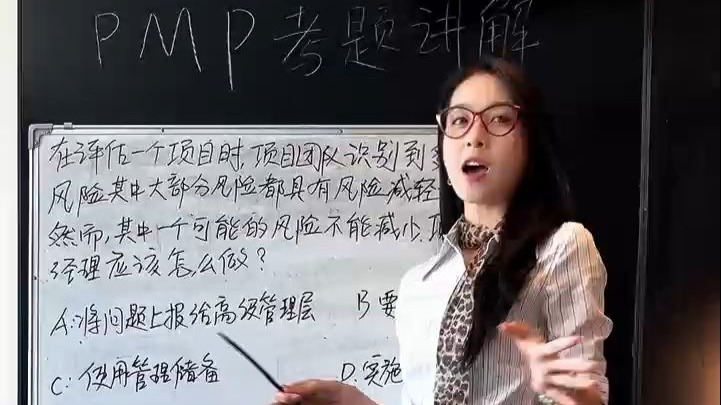 PMP考题讲解
在评估一个项目时,项目团队识别到多
风险其中大部分风险都具有风险减轻
然而,其中一个可能的风险不能减少.项
经理应该怎么做?
A:将问题上报给高级管理层 B 要
C:使用管理储备 D.实施